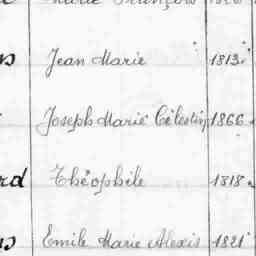 Marie François
s Jean Marie 1813
Joseph Marie Célestin 1866
rd Théophile 1818
s Emile Marie Alexis 1821